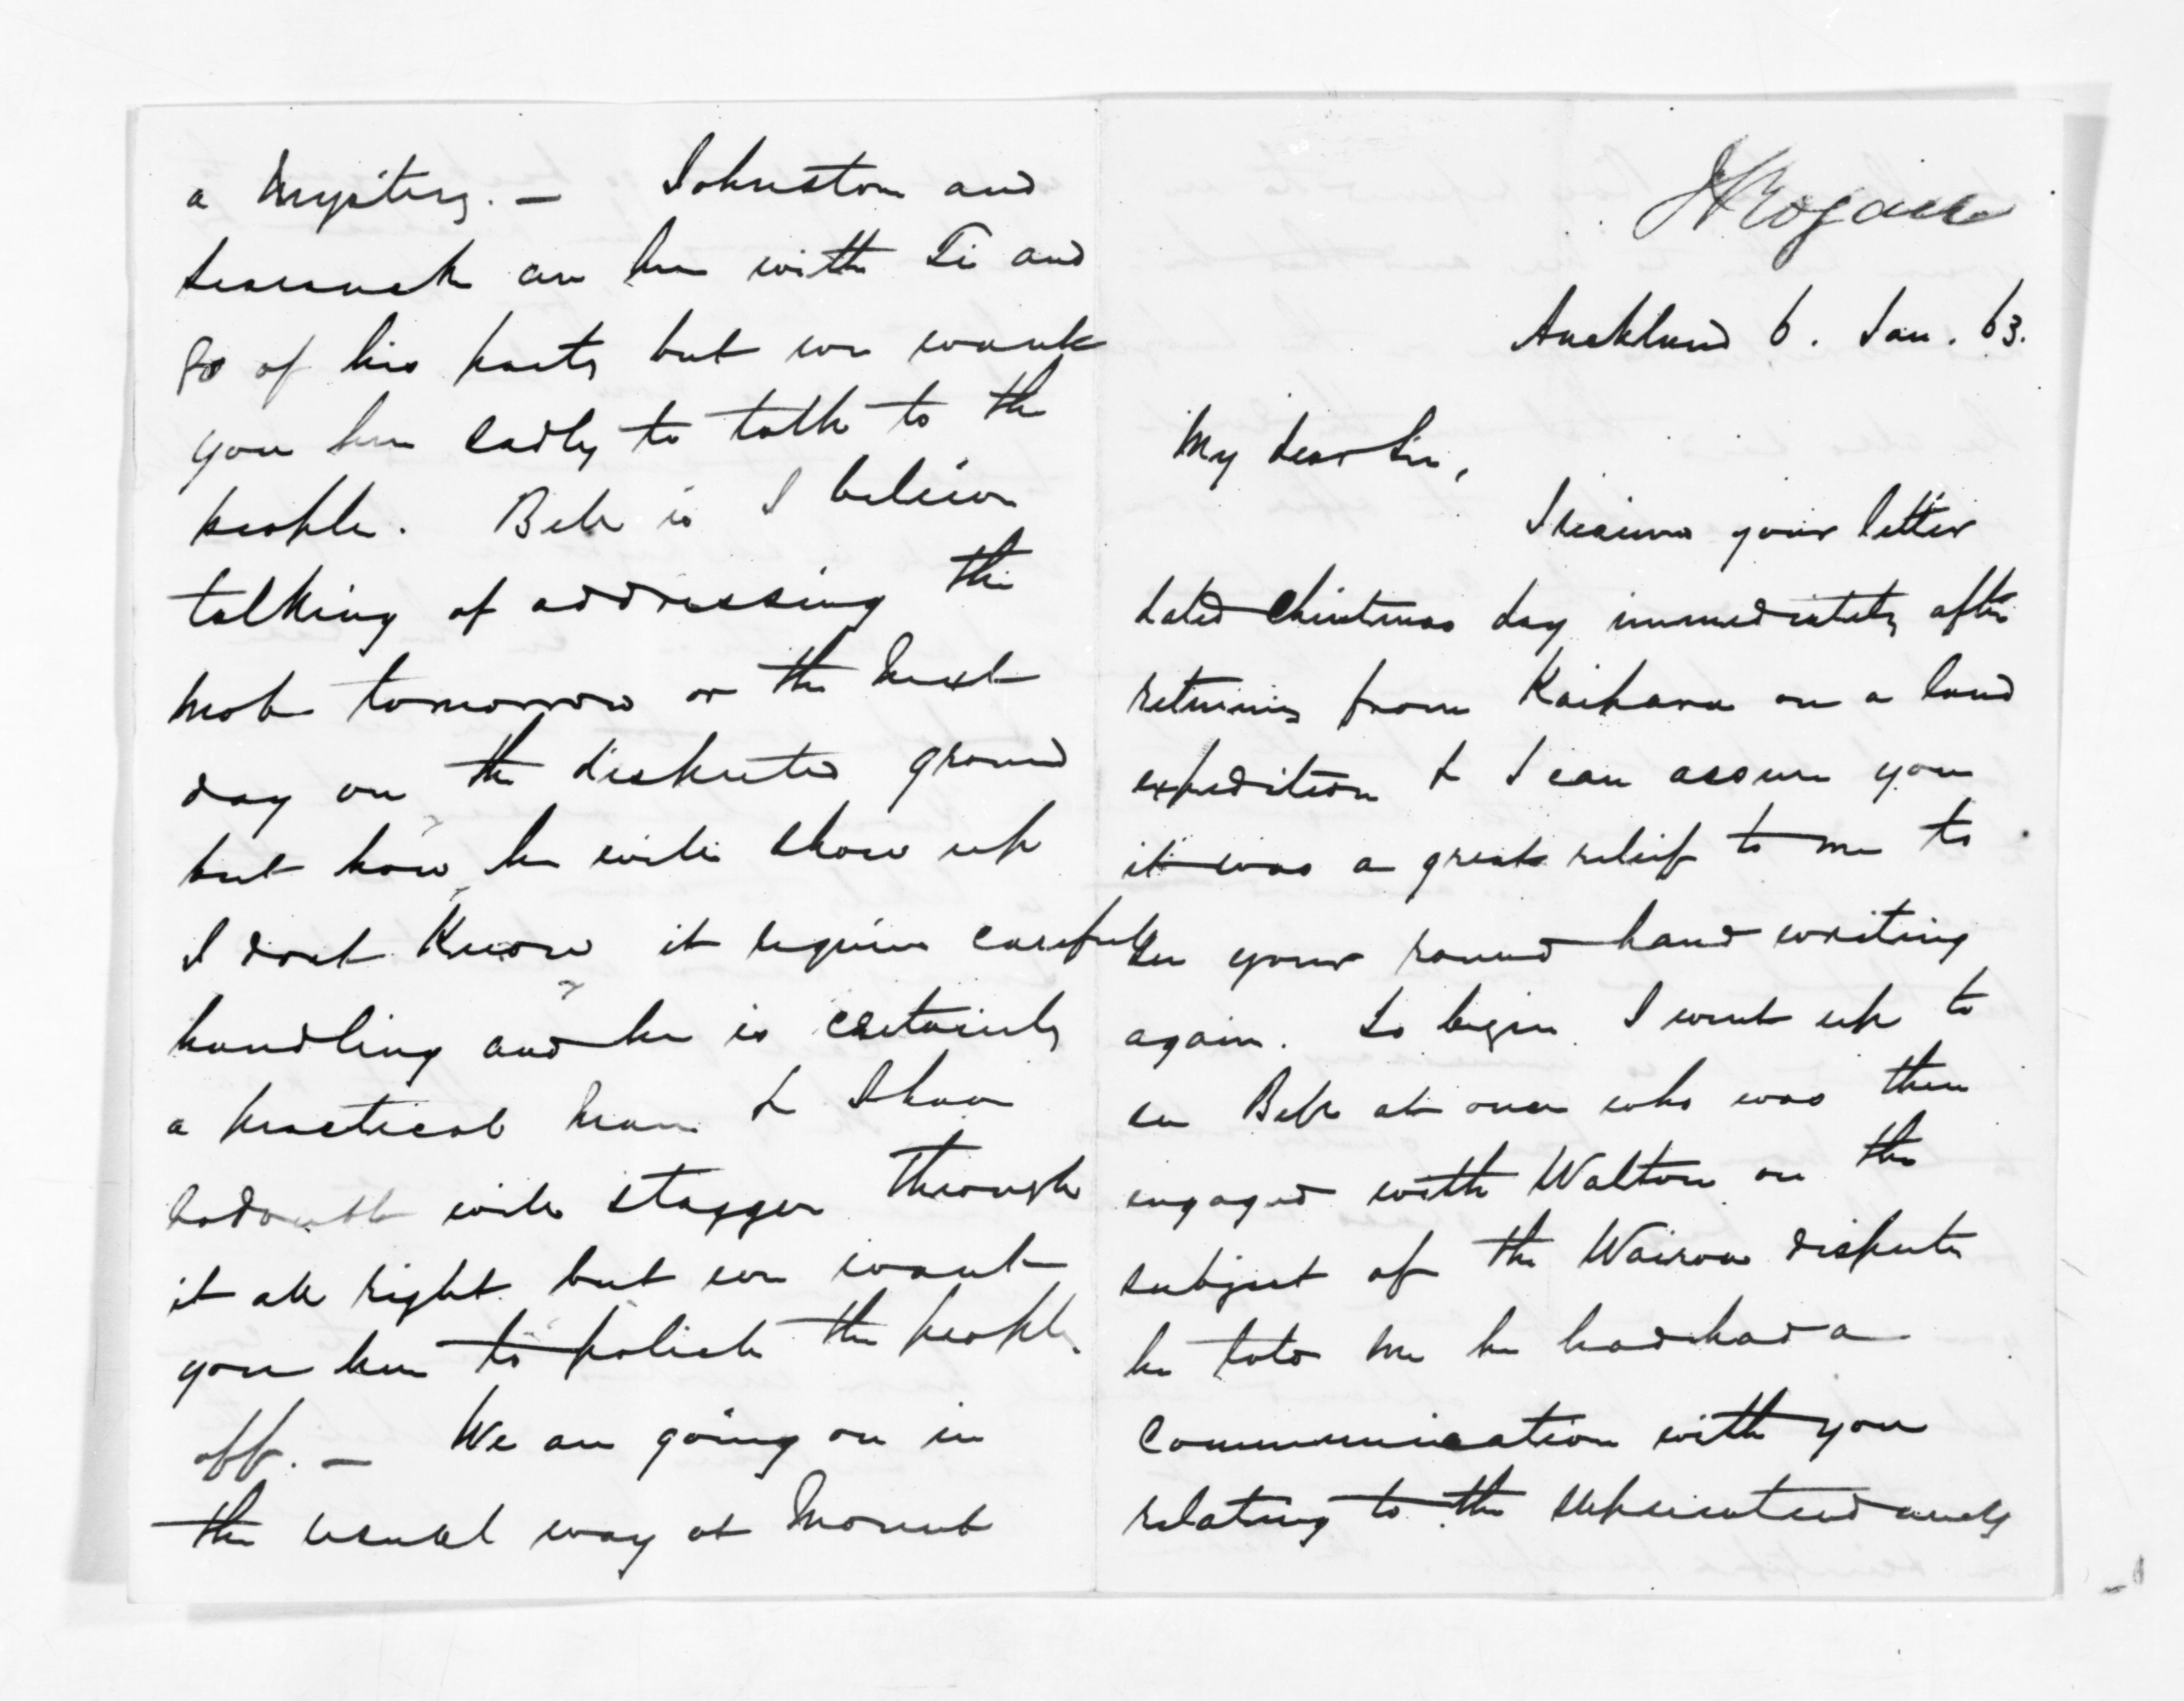 a mystery. — Johnston and
Searancke are here with Ti and
80 of his party but we want
you here sadly to talk to the
people. Bell is I believe
talking of addressing the
mob tomorrow or the next
day on the disputed ground
but how he will show up
I dont know it requires careful
handling and he is certainly
a practical man & I have
nodoubt will stagger through
it all right but we want
you here to polish the people
off. — We are going on in
the usual way at Mount
J Rogan
Auckland 6. Jan. 63.
My dear Sir,
I received your letter
dated Christmas day immediately after
returning from Kaipara on a land
expedition & I can assure you
it was a great relief to me to
see your round hand writing
again. To begin I went up to
see Bell at once who was then
engaged with Walton on the
subject of the Wairoa dispute
he told me he had had a
communication with you
relating to the superintendency